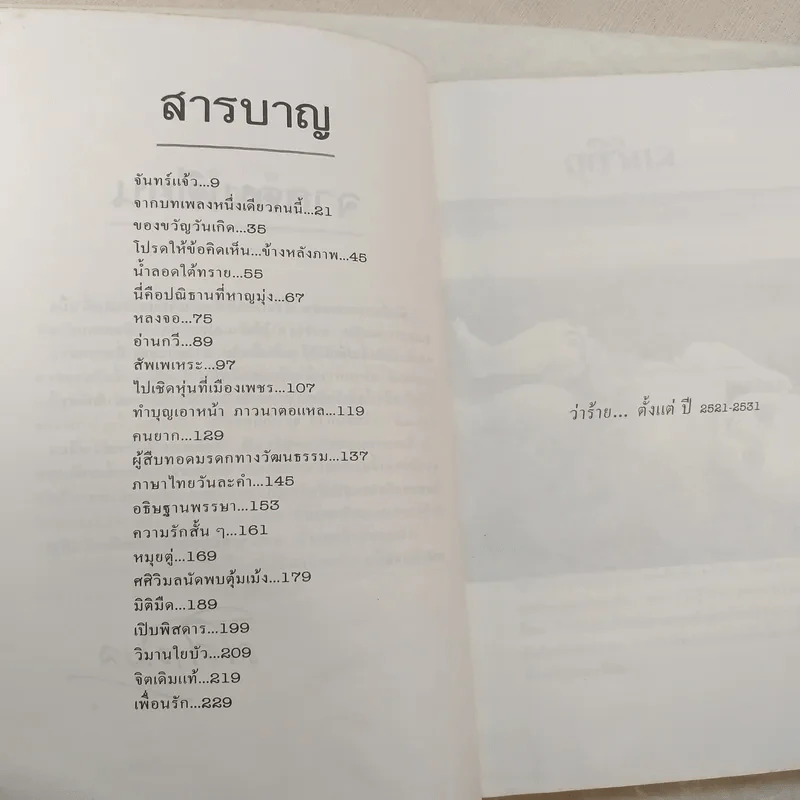 สารบาญ
จันทร์แจ้ว...9
จากบทเพลงหนึ่งเดียวคนนี้...21
ของขวัญวันเกิด...35
โปรดให้ข้อคิดเห็น...ข้างหลังภาพ...45
น้ำลอดใต้ทราย...55
นี่คือปณิธานที่หาญมุ่ง...67
หลงจอ...75
อ่านกวี...89
สัพเพเหระ...97
ไปเชิดหุ่นที่เมืองเพชร...107
ทำบุญเอาหน้า ภาวนาตอแหล...119
คนยาก...129
ผู้สืบทอดมรดกทางวัฒนธรรม...137
ภาษาไทยวันละคำ...145
อธิษฐานพรรษา...153
ความรักสั้น ๆ...161
หมุยตู่...169
ศศิวิมลนัดพบตุ้มเม้ง...179
มิติมืด...189
เปิบพิสดาร...199
วิมานใยบัว...209
จิตเดิมแท้...219
เพื่อนรัก...229
ว่าร้าย... ตั้งแต่ ปี 2521-2531